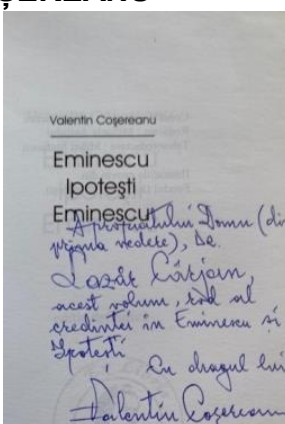 ȘEREANU
Valentin Coșereanu
Eminescu
Ipotești
Eminescu
Domn (din
prigua vedete), de
Lazăr Cârjan,
acest volum, rod al
credinței în Eminescu și
Ipotești
Cu dragul lui
Valentin Coșereanu